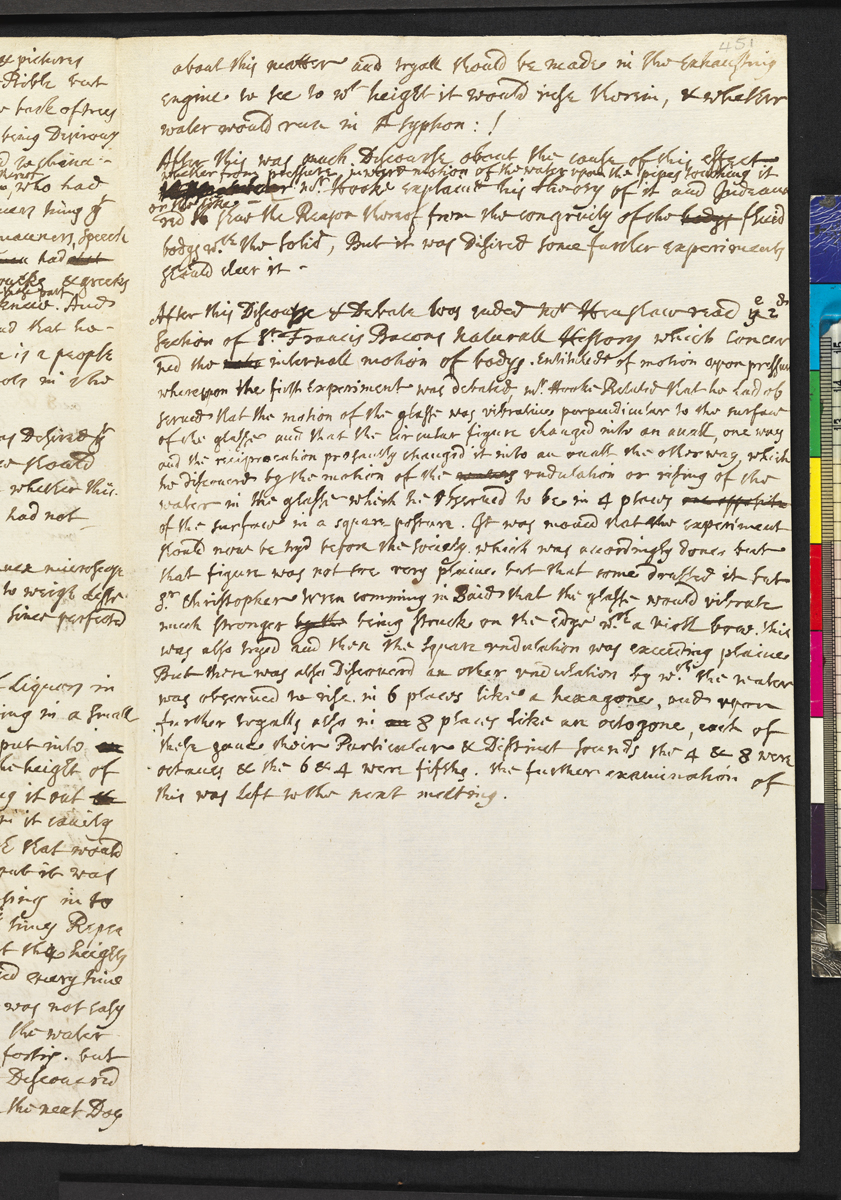 x pictures
Bible but
e bark of trees
being Desirous
, who had
manners, speech
had
& greeks
And
nd that he-
e is a people
ols in the
as Desired yt
should
whether this
had not
microscope
to weigh
since perfected
f Liquors in
ing in a small
put into
the height of
g it out
it easily
that would
put it was
sing in to
times
t the heights
d every time
was not easy
the water
fortis. but
Discouered
the next Day
451
about this matter and tryall should be made in the Exhausting
Engine to see to wt height it would rise therein, & whether
water would run in A syphon: !
After this was much Discourse about the cause of this effect
whether from pressure, inward motion of the water upon the pipes touching it
or the like mr. Hooke explaind his theory of it and Indeauo
red to shew the Reason thereof from the congruity of the bodys fluid
bodys wth. the solid, But it was Disired some further experiments
should cleer it -
After this Discourse & Debate was ended mr Henshaw read ye 2d
Section of Sr. Francis Bacons Naturall History which Concer
ned the internall motion of bodys. Entituled of motion upon pressure
whereupon the fifth Experiment was debated, mr. Hooke Related that he had ob
serued that the motion of the glasse was vibratiue perpendicular to the surface
of the glasse and that the circular figure changed into an ouall, one way
and the reciprocation presantly changed it into an ouall the other way, which
he discouered by the motion of the undulation or rising of the
water in the glasse which he obserued to be in 4 places on opposite
of the surface in a square posture. It was moued that the experiment
should now be tryd before the society. which was accordingly done. but
that figure was not soe very plaine. but that some doubted it but
Sr Christopher Wren comming in Said that the glasse would vibrate
much stronger by the being struck on the edge wth a violl bow. this
was also tryed and then the square undulation was exceeding plaine
But there was also Discouered an other undulation by wch. the water
was obserued to rise. in 6 places like a hexagone, and upon
further tryalls also in 8 places Like an octogone, each of
these gaue their Particular & Distinct sounds the 4 & 8 were
octaues & the 6 & 4 were fifths. the further examination of
this was Left to the next meeting.